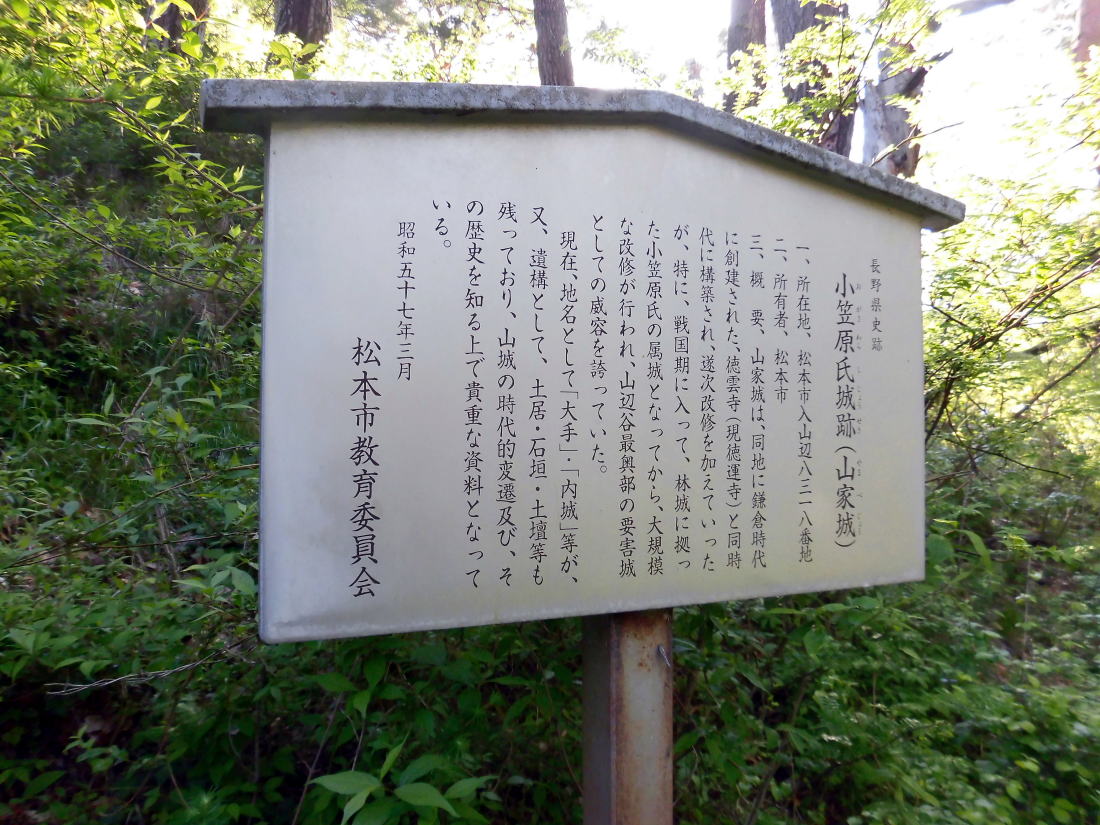 長野県史跡
小笠原氏城跡(山家城)
一、所在地、松本市入山辺八三一八番地
二、所有者、松本市
三、概　要、山家城は、同地に鎌倉時代
に創建された、徳雲寺(現徳運寺)と同時
代に構築され、逐次改修を加えていった
が、特に、戦国期に入って、林城に拠っ
た小笠原氏の属城となってから、大規模
な改修が行われ、山辺谷最奥部の要害城
としての威容を誇っていた。
現在、地名として「大手」・「内城」等が、
又、遺構として、土居・石垣・土壇等も
残っており、山城の時代的変遷及び、そ
の歴史を知る上で貴重な資料となって
いる。
昭和五十七年三月
松本市教育委員会